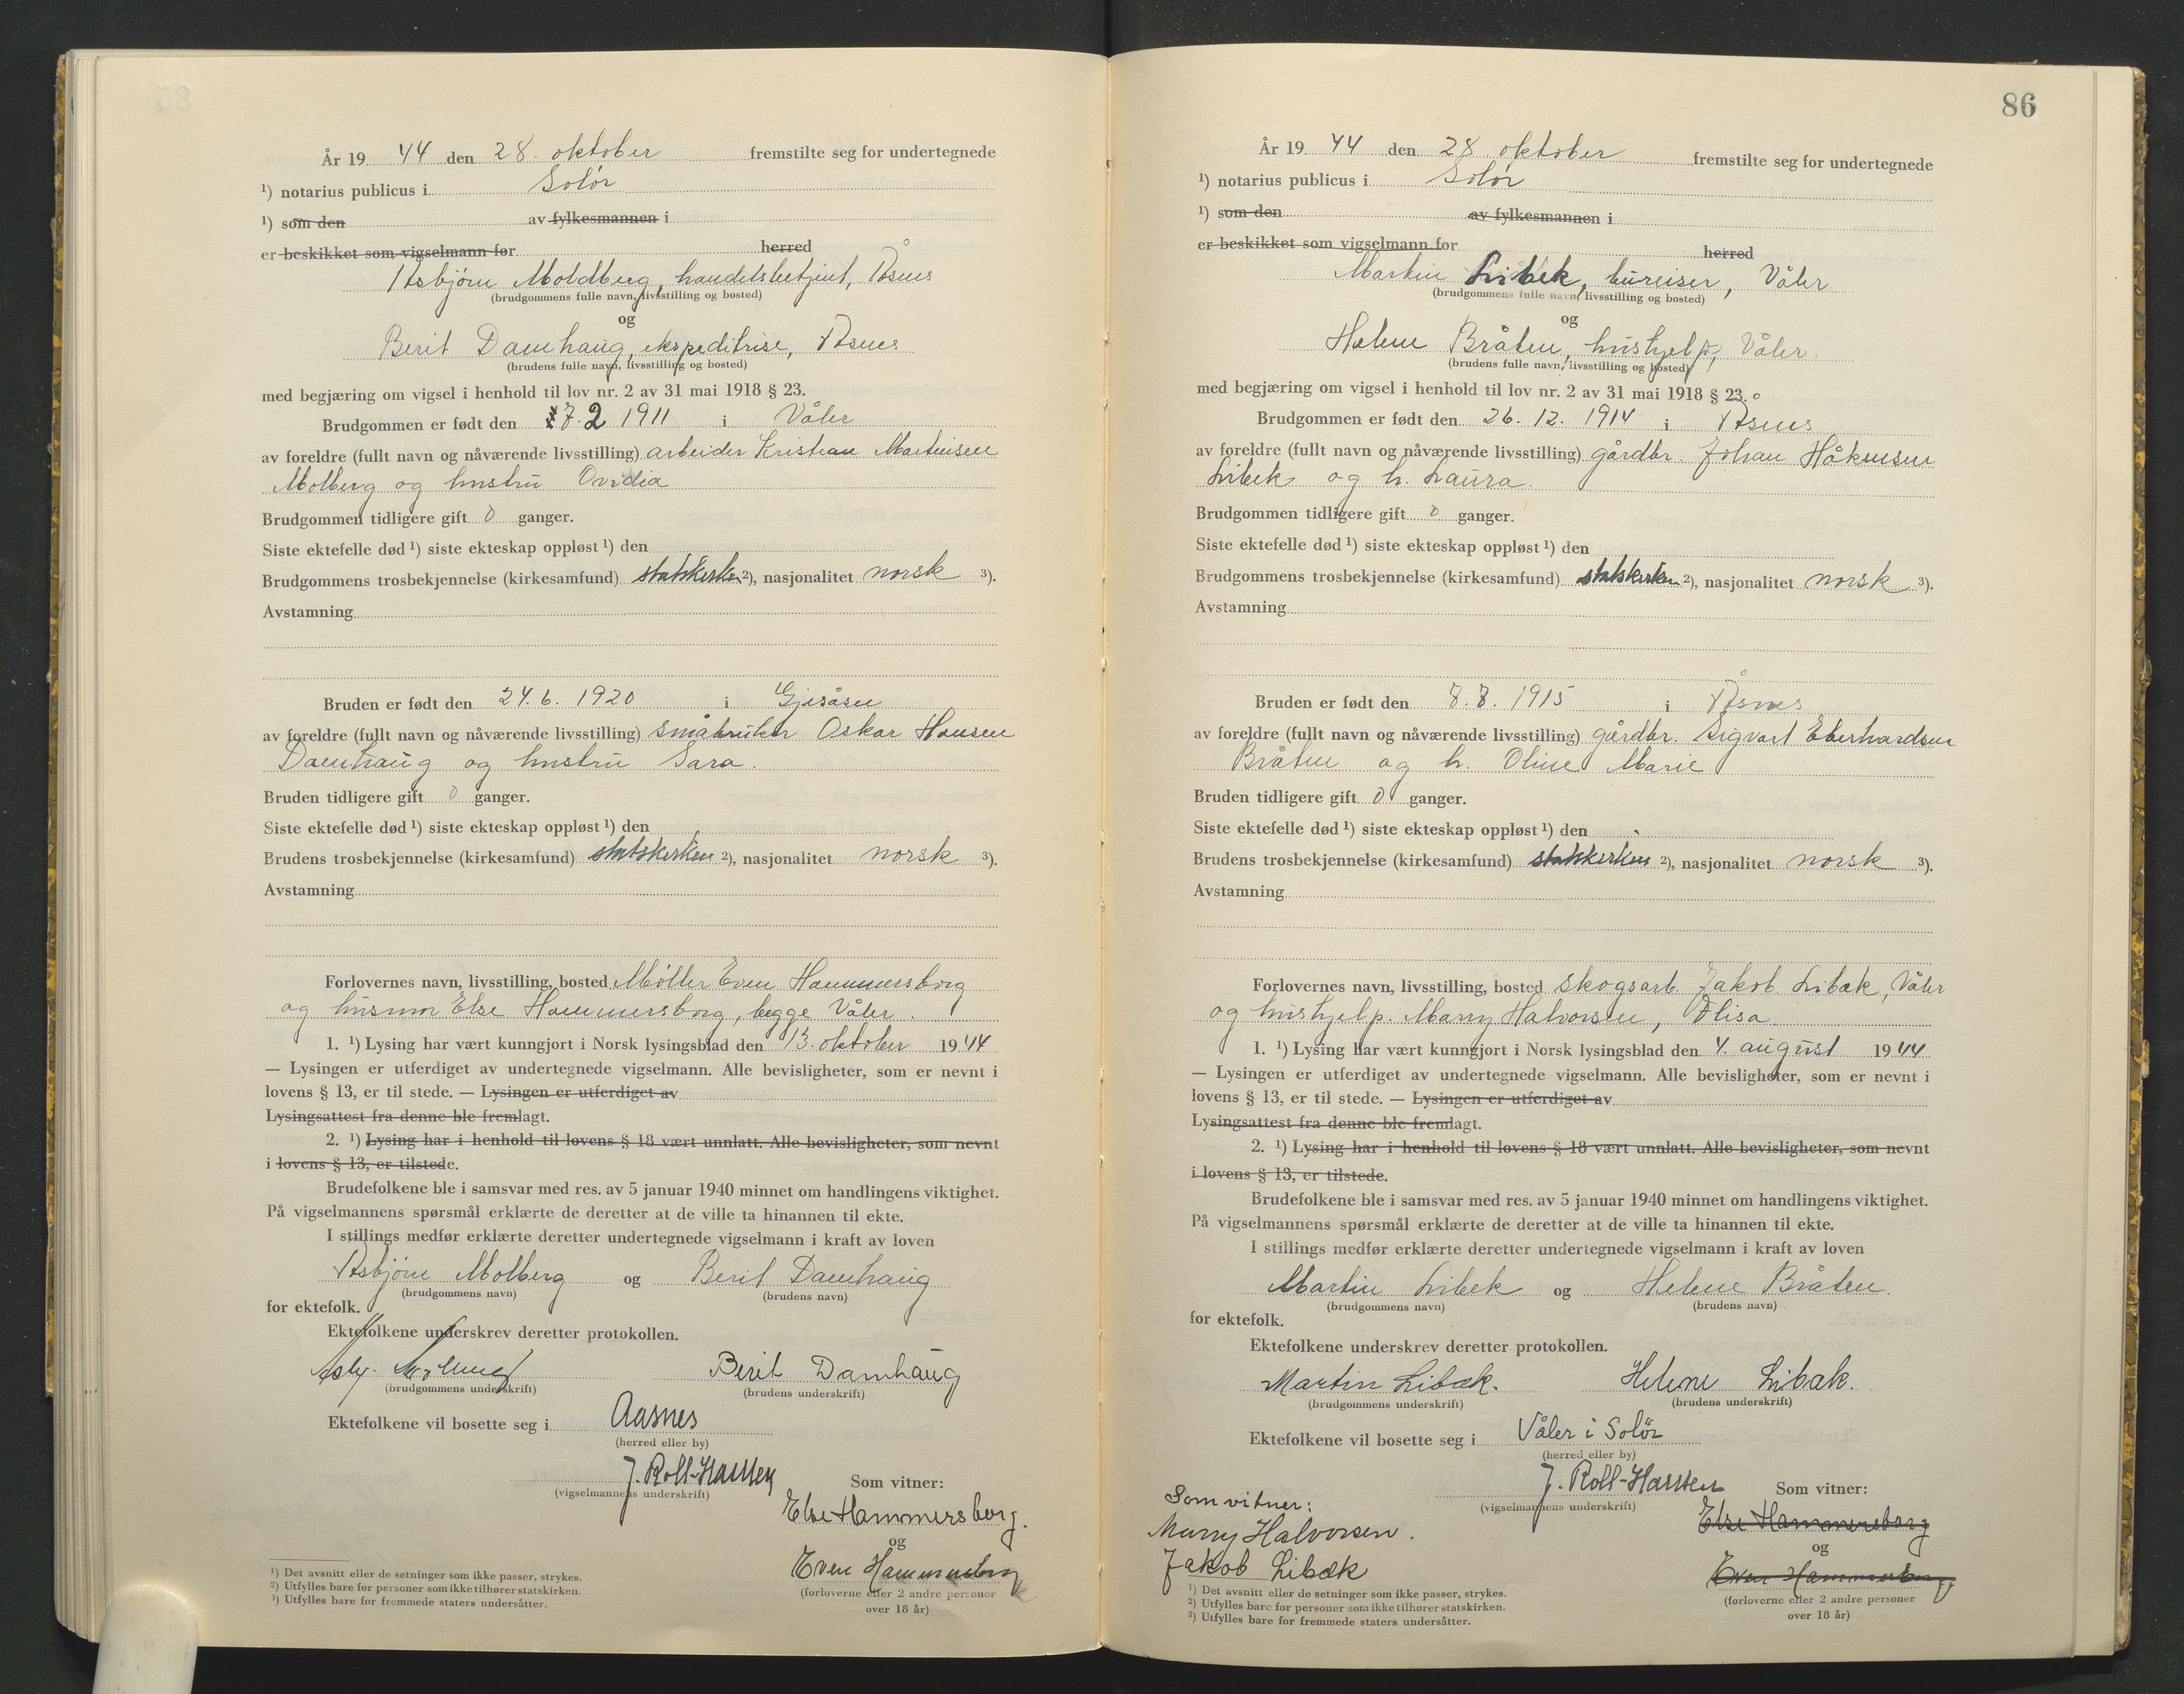 År 19 44 den 28. oktober fremstilte seg for undertegnede
¹) notarius publicus i Solør
¹) som den av fylkesmannen i
er beskikket som vigselmann for herred
Asbjörn Moldberg, handelsbetjent, Åsnes
(brudgommens fulle navn, livsstilling og bosted)
og
Berit Damhaug, ekspeditrise, Åsnes
(brudens fulle navn, livsstilling og bosted)
med begjæring om vigsel i henhold til lov nr. 2 av 31 mai 1918 § 23.
Brudgommen er født den 7. 2 1911 i Våler
av foreldre (fullt navn og nåværende livsstilling) arbeider Kristian Martinsen
Molberg og hustru Ovidia
Brudgommen tidligere gift 0 ganger.
Siste ektefelle død ¹) siste ekteskap oppløst ¹) den
Brudgommens trosbekjennelse (kirkesamfund) statskirken ²), nasjonalitet norsk ³).
Avstamning
Bruden er født den 24. 6. 1920 i Gjesåsen
av foreldre (fullt navn og nåværende livsstilling) småbruker Oskar Hansen
Damhaug og hustru Sara.
Bruden tidligere gift 0 ganger.
Siste ektefelle død ¹) siste ekteskap oppløst ¹) den
Brudens trosbekjennelse (kirkesamfund) statskirken ²), nasjonalitet norsk ³).
Avstamning
Forlovernes navn, livsstilling, bosted Møller Even Hammersborg
og husmor Else Hammersborg, begge Våler.
1. ¹) Lysing har vært kunngjort i Norsk lysingsblad den 13. oktober 1944
— Lysingen er utferdiget av undertegnede vigselmann. Alle bevisligheter, som er nevnt i
lovens § 13, er til stede. — Lysingen er utferdiget av
Lysingsattest fra denne ble fremlagt.
2. ¹) Lysing har i henhold til lovens § 18 vært unnlatt. Alle bevisligheter, som nevnt
i lovens § 13, er tilstede.
Brudefolkene ble i samsvar med res. av 5 januar 1940 minnet om handlingens viktighet.
På vigselmannens spørsmål erklærte de deretter at de ville ta hinannen til ekte.
I stillings medfør erklærte deretter undertegnede vigselmann i kraft av loven
Asbjörn Molberg og Berit Damhaug
(brudgommens navn) (brudens navn)
for ektefolk.
Ektefolkene underskrev deretter protokollen.
Asbj. Molberg Berit Damhaug
(brudgommens underskrift) (brudens underskrift)
Ektefolkene vil bosette seg i Aasnes
(herred eller by)
J. Roll-Hansen
(vigselmannens underskrift) Som vitner:
Else Hammersborg.
og
Even Hammersborg
(forloverne eller 2 andre personer
over 18 år)
¹) Det avsnitt eller de setninger som ikke passer, strykes.
²) Utfylles bare for personer som ikke tilhører statskirken.
³) Utfylles bare for fremmede staters undersåtter.
86
År 19 44 den 28. oktober fremstilte seg for undertegnede
¹) notarius publicus i Solør
¹) som den av fylkesmannen i
er beskikket som vigselmann for herred
Martin Libek, bureiser, Våler
(brudgommens fulle navn, livsstilling og bosted)
og
Helene Bråten, hushjelp, Våler.
(brudens fulle navn, livsstilling og bosted)
med begjæring om vigsel i henhold til lov nr. 2 av 31 mai 1918 § 23.
Brudgommen er født den 26. 12. 1914 i Åsnes
av foreldre (fullt navn og nåværende livsstilling) gårdbr. Johan Håkensen
Libek og h. Laura.
Brudgommen tidligere gift 0 ganger.
Siste ektefelle død ¹) siste ekteskap oppløst ¹) den
Brudgommens trosbekjennelse (kirkesamfund) statskirken ²), nasjonalitet norsk ³).
Avstamning
Bruden er født den 7. 7. 1915 i Åsnes
av foreldre (fullt navn og nåværende livsstilling) gårdbr. Sigvart Eberhardsen
Bråten og h. Oline Marie
Bruden tidligere gift 0 ganger.
Siste ektefelle død ¹) siste ekteskap oppløst ¹) den
Brudens trosbekjennelse (kirkesamfund) statskirken ²), nasjonalitet norsk ³).
Avstamning
Forlovernes navn, livsstilling, bosted skogsarb. Jakob Libæk, Våler
og hushjelp. Marry Halvorsen, Flisa
1. ¹) Lysing har vært kunngjort i Norsk lysingsblad den 4. august 1944
— Lysingen er utferdiget av undertegnede vigselmann. Alle bevisligheter, som er nevnt i
lovens § 13, er til stede. — Lysingen er utferdiget av
Lysingsattest fra denne ble fremlagt.
2. ¹) Lysing har i henhold til lovens § 18 vært unnlatt. Alle bevisligheter, som nevnt
i lovens § 13, er tilstede.
Brudefolkene ble i samsvar med res. av 5 januar 1940 minnet om handlingens viktighet.
På vigselmannens spørsmål erklærte de deretter at de ville ta hinannen til ekte.
I stillings medfør erklærte deretter undertegnede vigselmann i kraft av loven
Martin Libek og Helene Bråten.
(brudgommens navn) (brudens navn)
for ektefolk.
Ektefolkene underskrev deretter protokollen.
Martin Libæk. Helene Libæk.
(brudgommens underskrift) (brudens underskrift)
Ektefolkene vil bosette seg i Våler i Solør
(herred eller by)
J. Roll-Hansen
(vigselmannens underskrift) Som vitner:
Else Hammersborg
og
Even Hammersborg
(forloverne eller 2 andre personer
over 18 år)
Som vitner:
Marry Halvorsen.
Jakob Libæk
¹) Det avsnitt eller de setninger som ikke passer, strykes.
²) Utfylles bare for personer som ikke tilhører statskirken.
³) Utfylles bare for fremmede staters undersåtter.